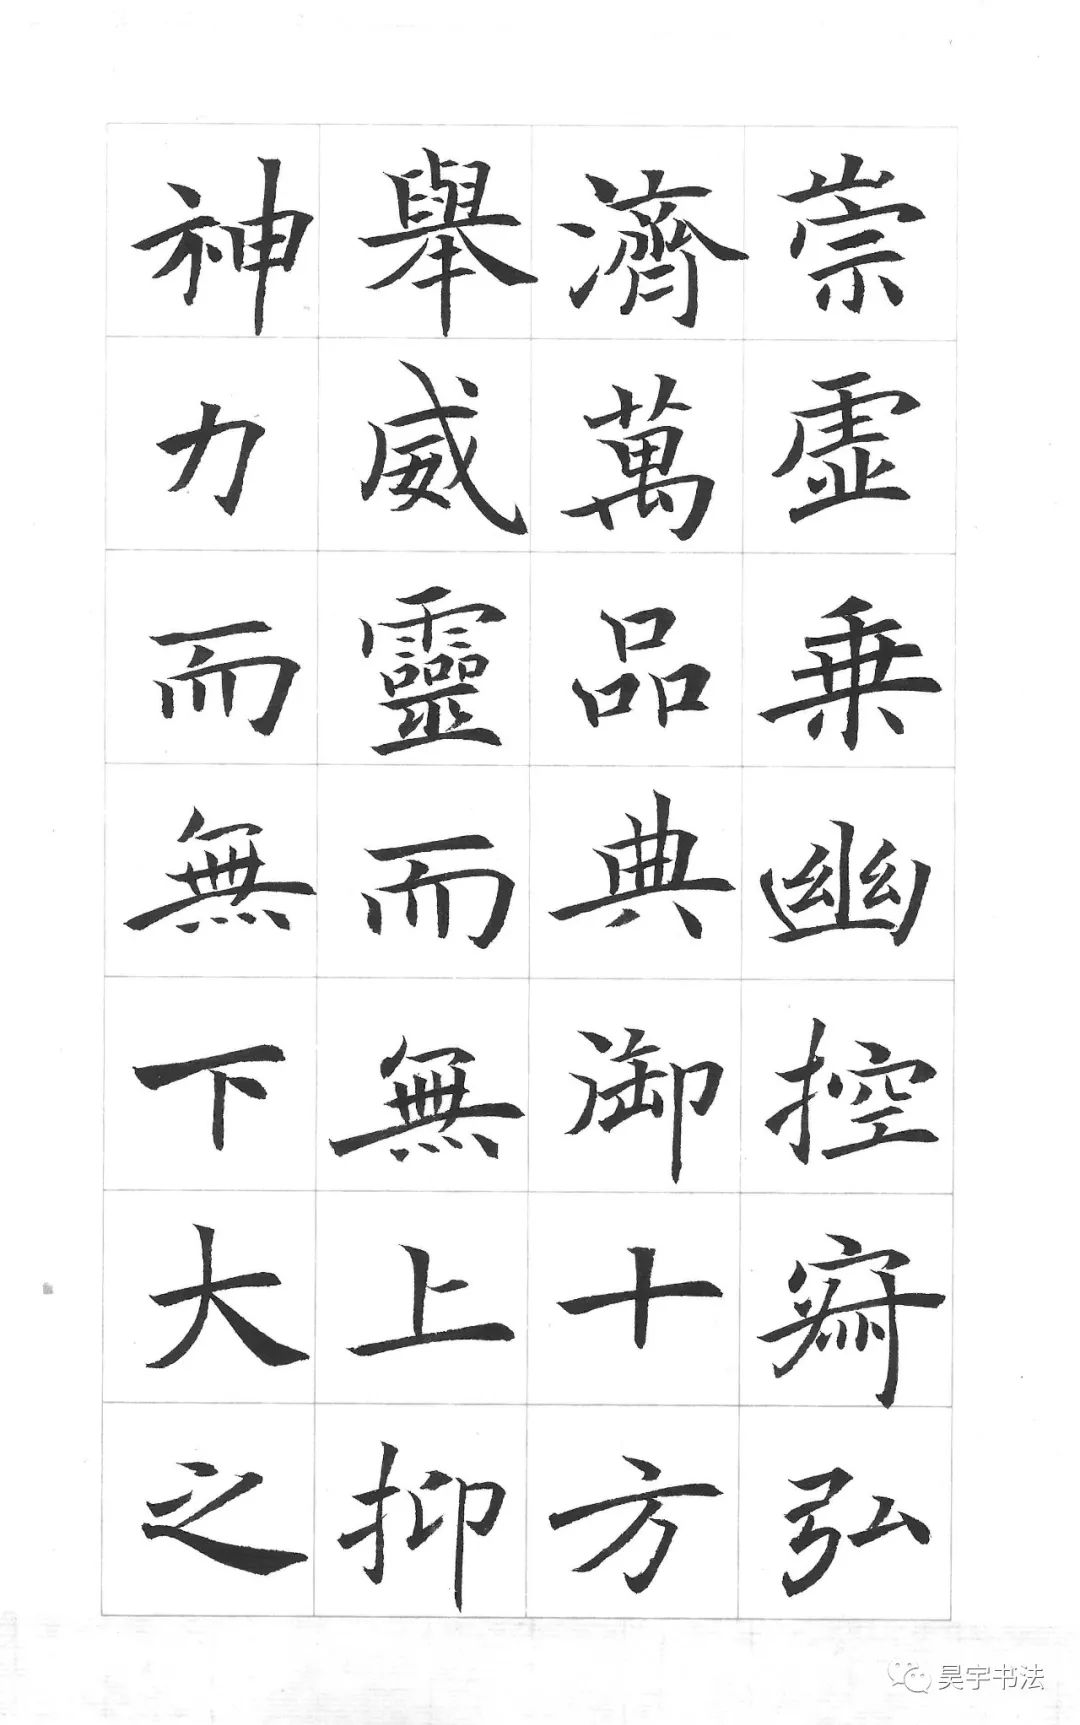 崇虚乗幽控寂弘
濟萬品典御十方
舉威靈而無上抑
神力而無下大之
昊宇书法